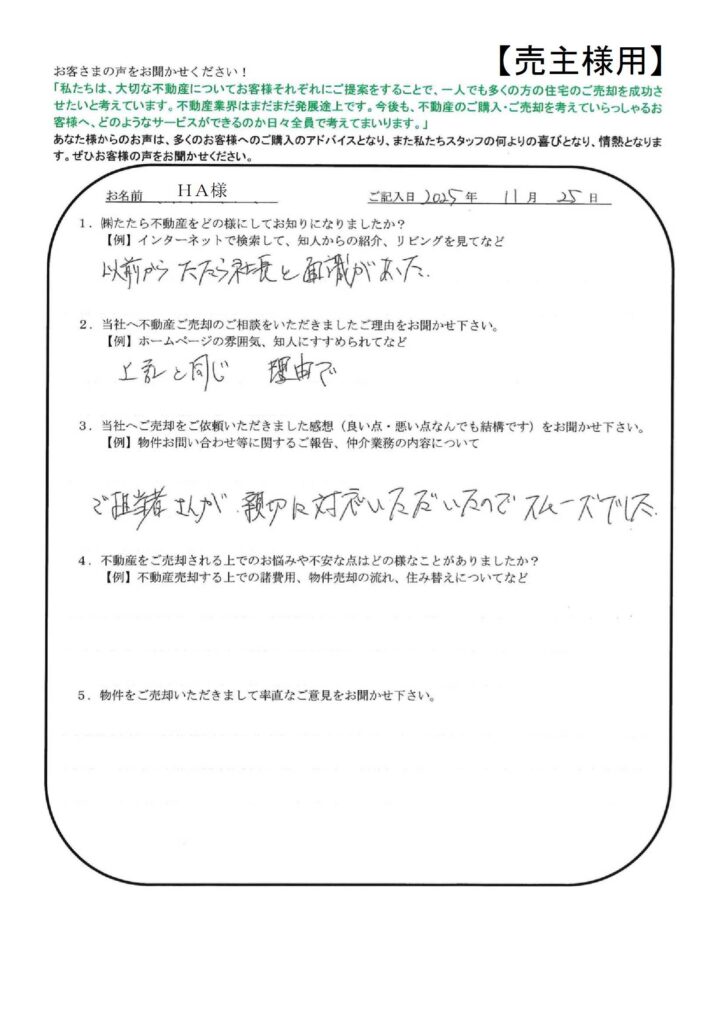 【売主様用】
お客さまの声をお聞かせください！
「私たちは、大切な不動産についてお客様それぞれにご提案をすることで、一人でも多くの方の住宅のご売却を成功さ
せたいと考えています。不動産業界はまだまだ発展途上です。今後も、不動産のご購入・ご売却を考えていらっしゃるお
客様へ、どのようなサービスができるのか日々全員で考えてまいります。」
あなた様からのお声は、多くのお客様へのご購入のアドバイスとなり、また私たちスタッフの何よりの喜びとなり、情熱となりま
す。ぜひお客様の声をお聞かせください。
お名前 HA様 ご記入日 2025年 11月 25日
1．㈱たたら不動産をどの様にしてお知りになりましたか？
【例】インターネットで検索して、知人からの紹介、リビングを見てなど
以前から たたら社長と面識があった.
2．当社へ不動産ご売却のご相談をいただきましたご理由をお聞かせ下さい。
【例】ホームページの雰囲気、知人にすすめられてなど
上記と同じ 理由で
3．当社へご売却をご依頼いただきました感想（良い点・悪い点なんでも結構です）をお聞かせ下さい。
【例】物件お問い合わせ等に関するご報告、仲介業務の内容について
ご担当者さんが 親切に対応いただいたので スムーズでした.
4．不動産をご売却される上でのお悩みや不安な点はどの様なことがありましたか？
【例】不動産売却する上での諸費用、物件売却の流れ、住み替えについてなど
5．物件をご売却いただきまして率直なご意見をお聞かせ下さい。